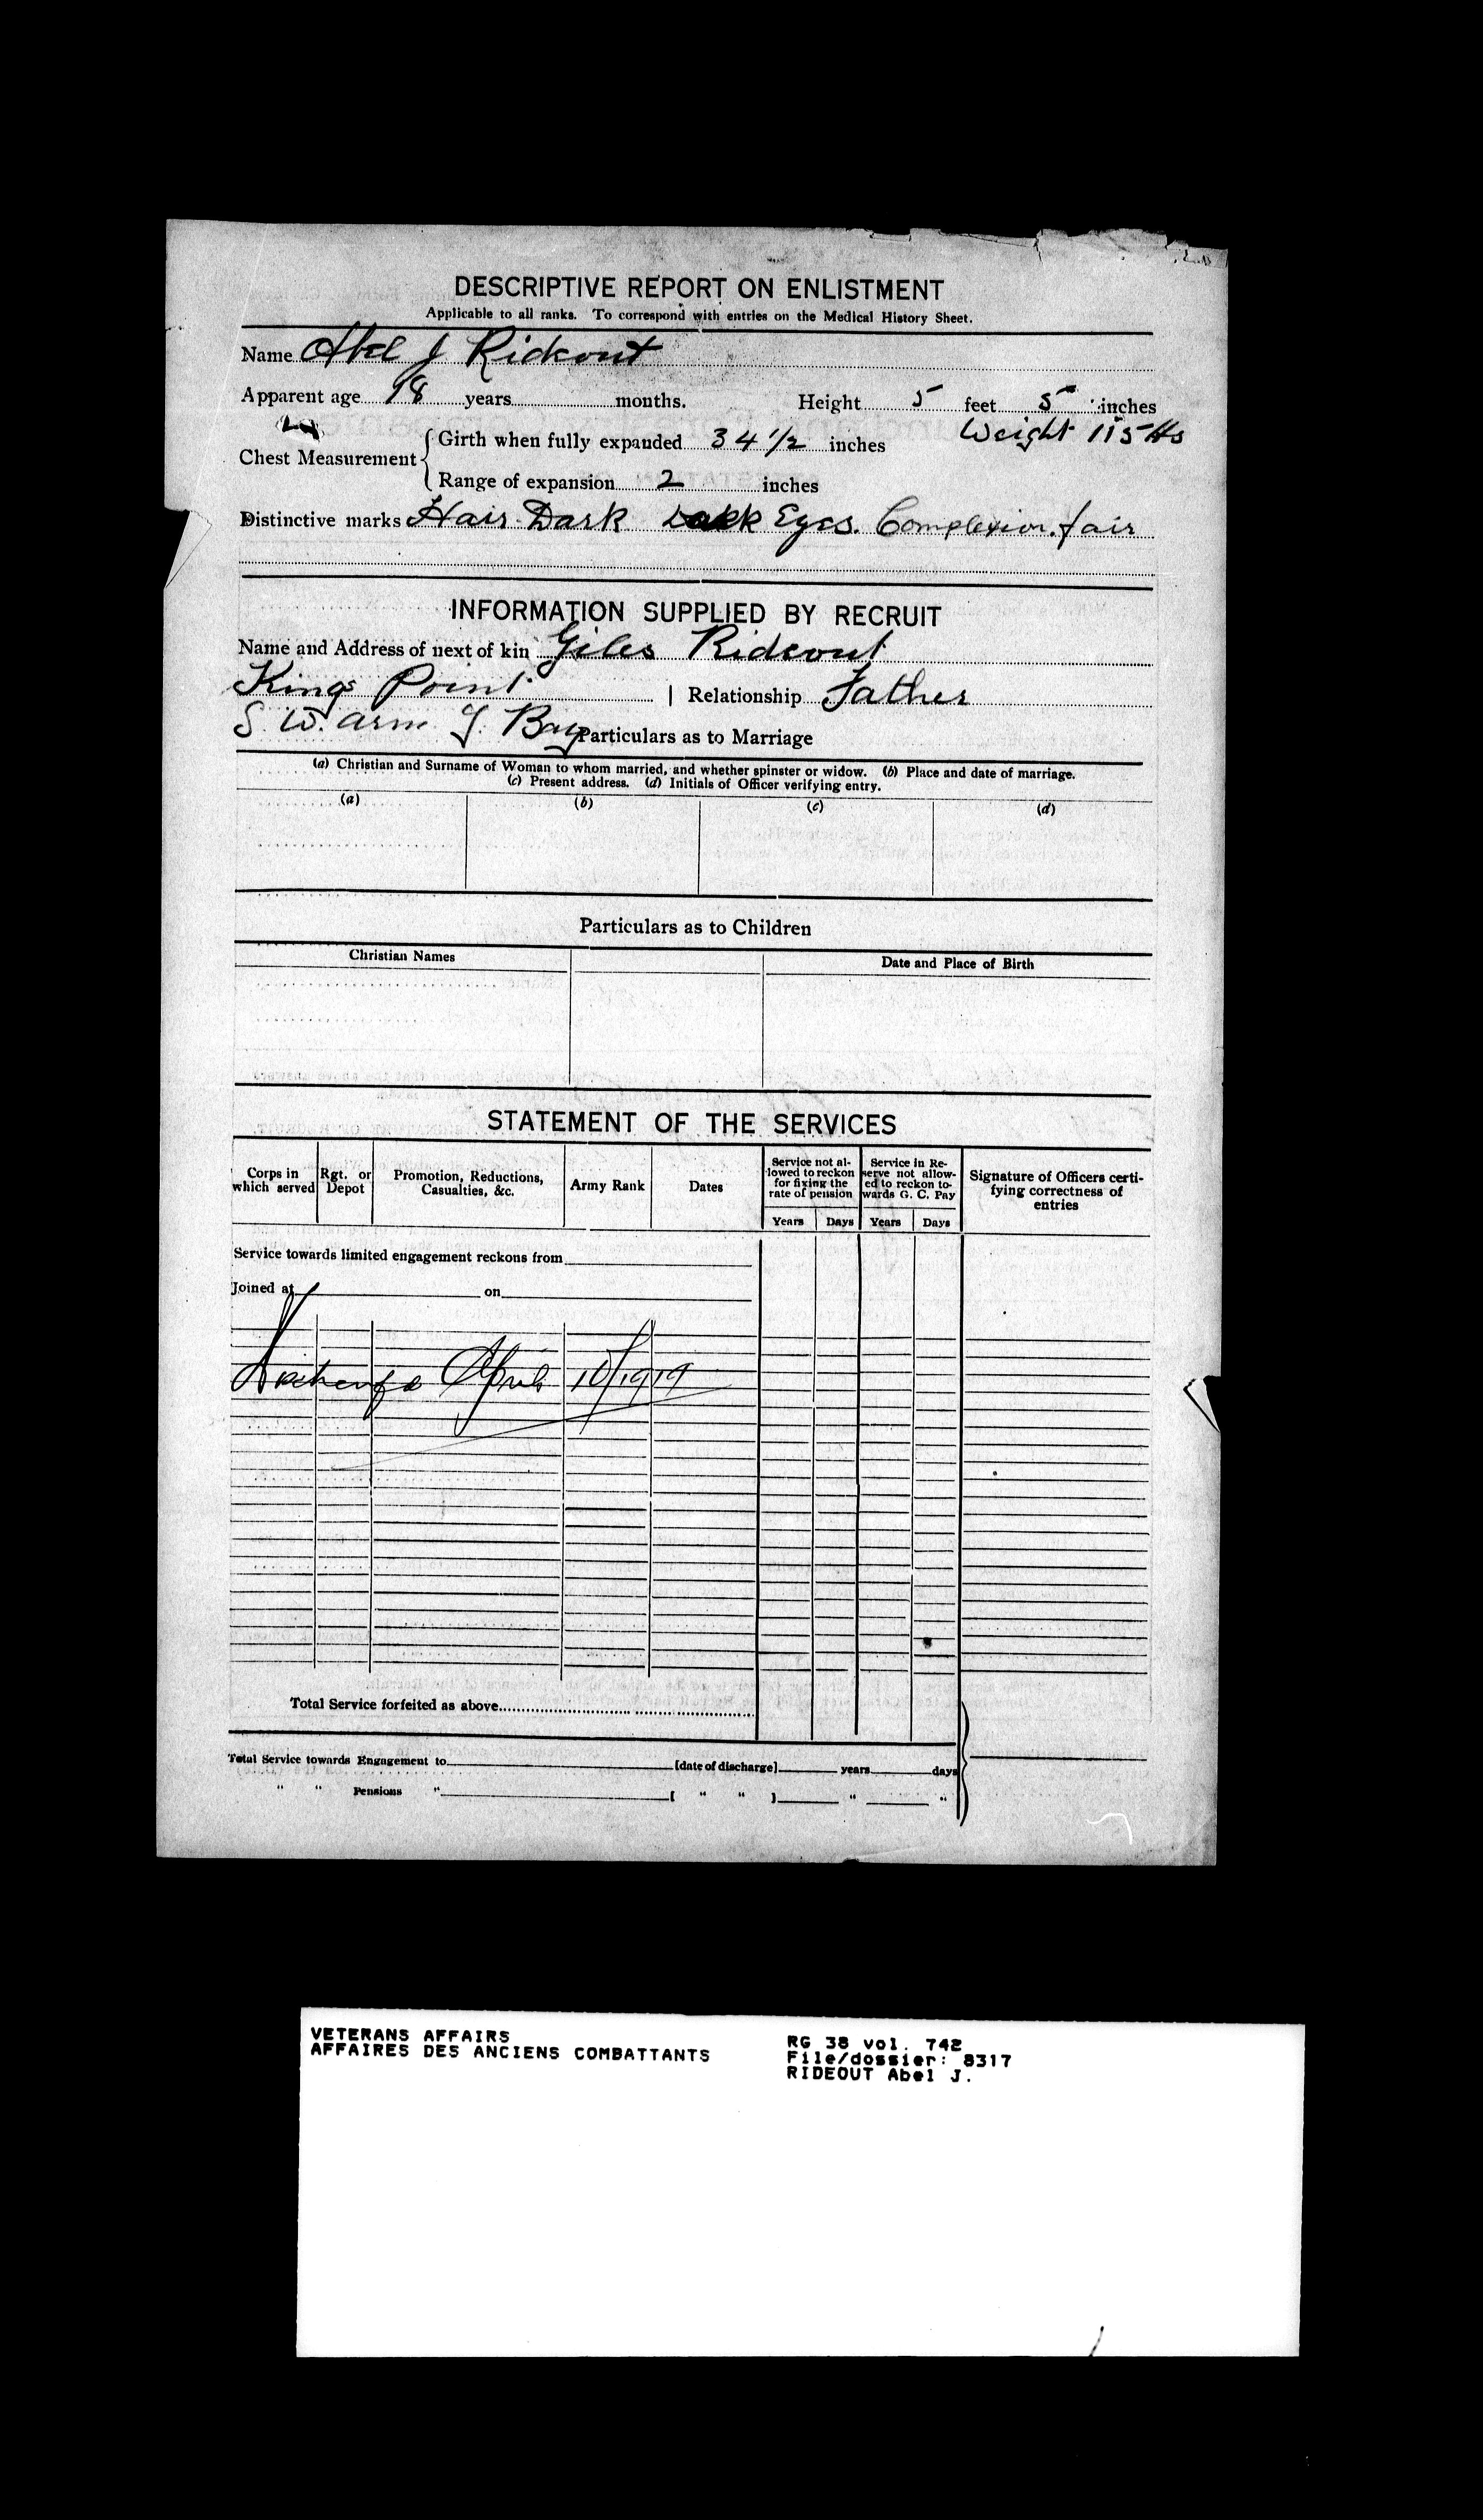 DESCRIPTIVE REPORT ON ENLISTMENT
Applicable to all ranks. To correspond with entries on the Medical History Sheet.
Name Abel J Rideout
Apparent age 18 years months. Height 5 feet 5 inches
Weight 115 lbs
Chest Measurement { Girth when fully expanded 34 1/2 inches
Range of expansion 2 inches
Distinctive marks Hair Dark Dark Eyes. Complexion. fair
INFORMATION SUPPLIED BY RECRUIT
Name and Address of next of kin Giles Rideout
Kings Point | Relationship Father
S. W. Arm G. Bay Particulars as to Marriage
(a) Christian and Surname of Woman to whom married, and whether spinster or widow. (b) Place and date of marriage.
(c) Present address. (d) Initials of Officer verifying entry.
(a) (b) (c) (d)
Particulars as to Children
Christian Names Date and Place of Birth
STATEMENT OF THE SERVICES
Corps in which served Rgt. or Depot Promotion, Reductions, Casualties, &c. Army Rank Dates Service not allowed to reckon for fixing the rate of pension Service in Reserve not allowed to reckon towards G. C. Pay Signature of Officers certifying correctness of entries
Years Days Years Days
Service towards limited engagement reckons from
Joined at on
April 10/1919
Total Service forfeited as above
Total Service towards Engagement to [date of discharge] years days
" " Pensions " [ " " ] " "
VETERANS AFFAIRS
AFFAIRES DES ANCIENS COMBATTANTS
RG 38 vol. 742
File/dossier: 8317
RIDEOUT Abel J.